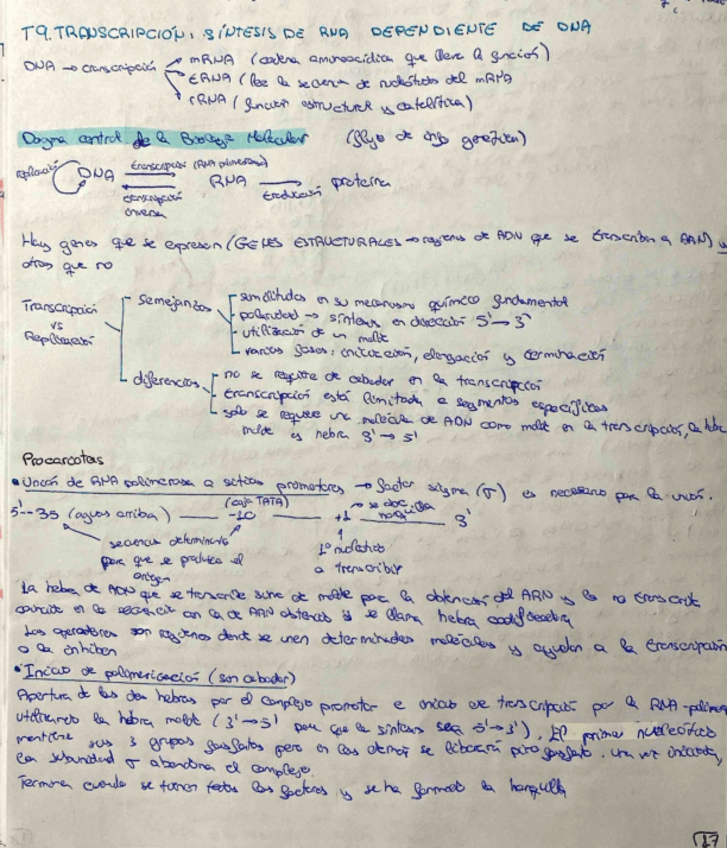 T9. TRANSCRIPCIÓN: SÍNTESIS DE RNA DEPENDIENTE DE DNA
DNA → transcripción mRNA (cadena aminoacídica que lleva la función)
tRNA (lee la secuencia de nucleótidos del mRNA)
rRNA (función estructural y catalítica)
Dogma central de la Biología Molecular (flujo de info genética)
replicación DNA transcripción (RNA polimerasa) RNA traducción proteína
transcripción
inversa
Hay genes que se expresan (GENES ESTRUCTURALES → regiones de ADN que se transcriben a ARN) y
otros que no
Transcripción
vs
Replicación
semejanzas
- similitudes en su mecanismo químico fundamental
- polaridad → síntesis en dirección 5'→3'
- utilización de un molde
- varias fases: iniciación, elongación y terminación
diferencias
no se requiere de cebador en la transcripción
transcripción está limitada a segmentos específicos
solo se requiere una molécula de ADN como molde en la transcripción, la hebra
molde es hebra 3'→5'
Procariotas
• Unión de RNA polimerasa a sitios promotores → factor sigma (σ) es necesario para la unión.
5'--35 (aguas arriba) -10 (caja TATA) +1 3'
secuencias determinante
para que se produzca el
origen
1º nucleótido
a transcribir
La hebra de ADN que se transcribe sirve de molde para la obtención del ARN y la no transcrita
coincide en la secuencia con la de ARN obtenido y se llama hebra codificadora
Los operadores son regiones donde se unen determinadas moléculas y ayudan a la transcripción
o la inhiben
• Inicio de polimerización (sin cebador)
Apertura de las dos hebras por el complejo promotor e inicio de transcripción por la RNA-polimerasa
utilizando la hebra molde (3'→5' para que la síntesis sea 5'→3'). El primer nucleótido
mantiene sus 3 grupos fosfatos pero en los demás se liberará pirofosfato. Una vez iniciada,
la subunidad σ abandona el complejo.
Termina cuando se toman todos los factores y se ha formado la horquilla
17